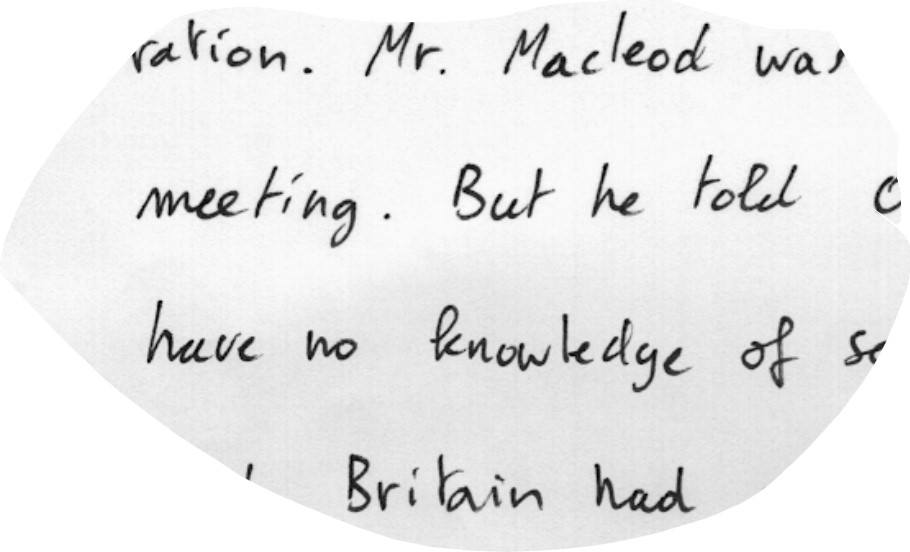 ration. Mr. Macleod was
meeting. But he told
have no knowledge of
Britain had